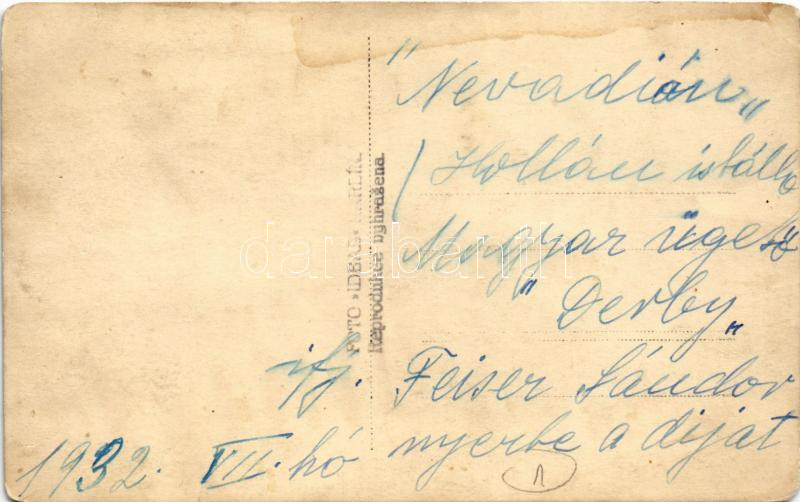 "Nevadián"
/ Hollán istálló
Magyar ügető
"Derby"
ifj. Feiser Sándor
1932. VII. hó nyerte a díját
FOTO »IDEAS«
Reprodukce vyhrazena.
darabanth